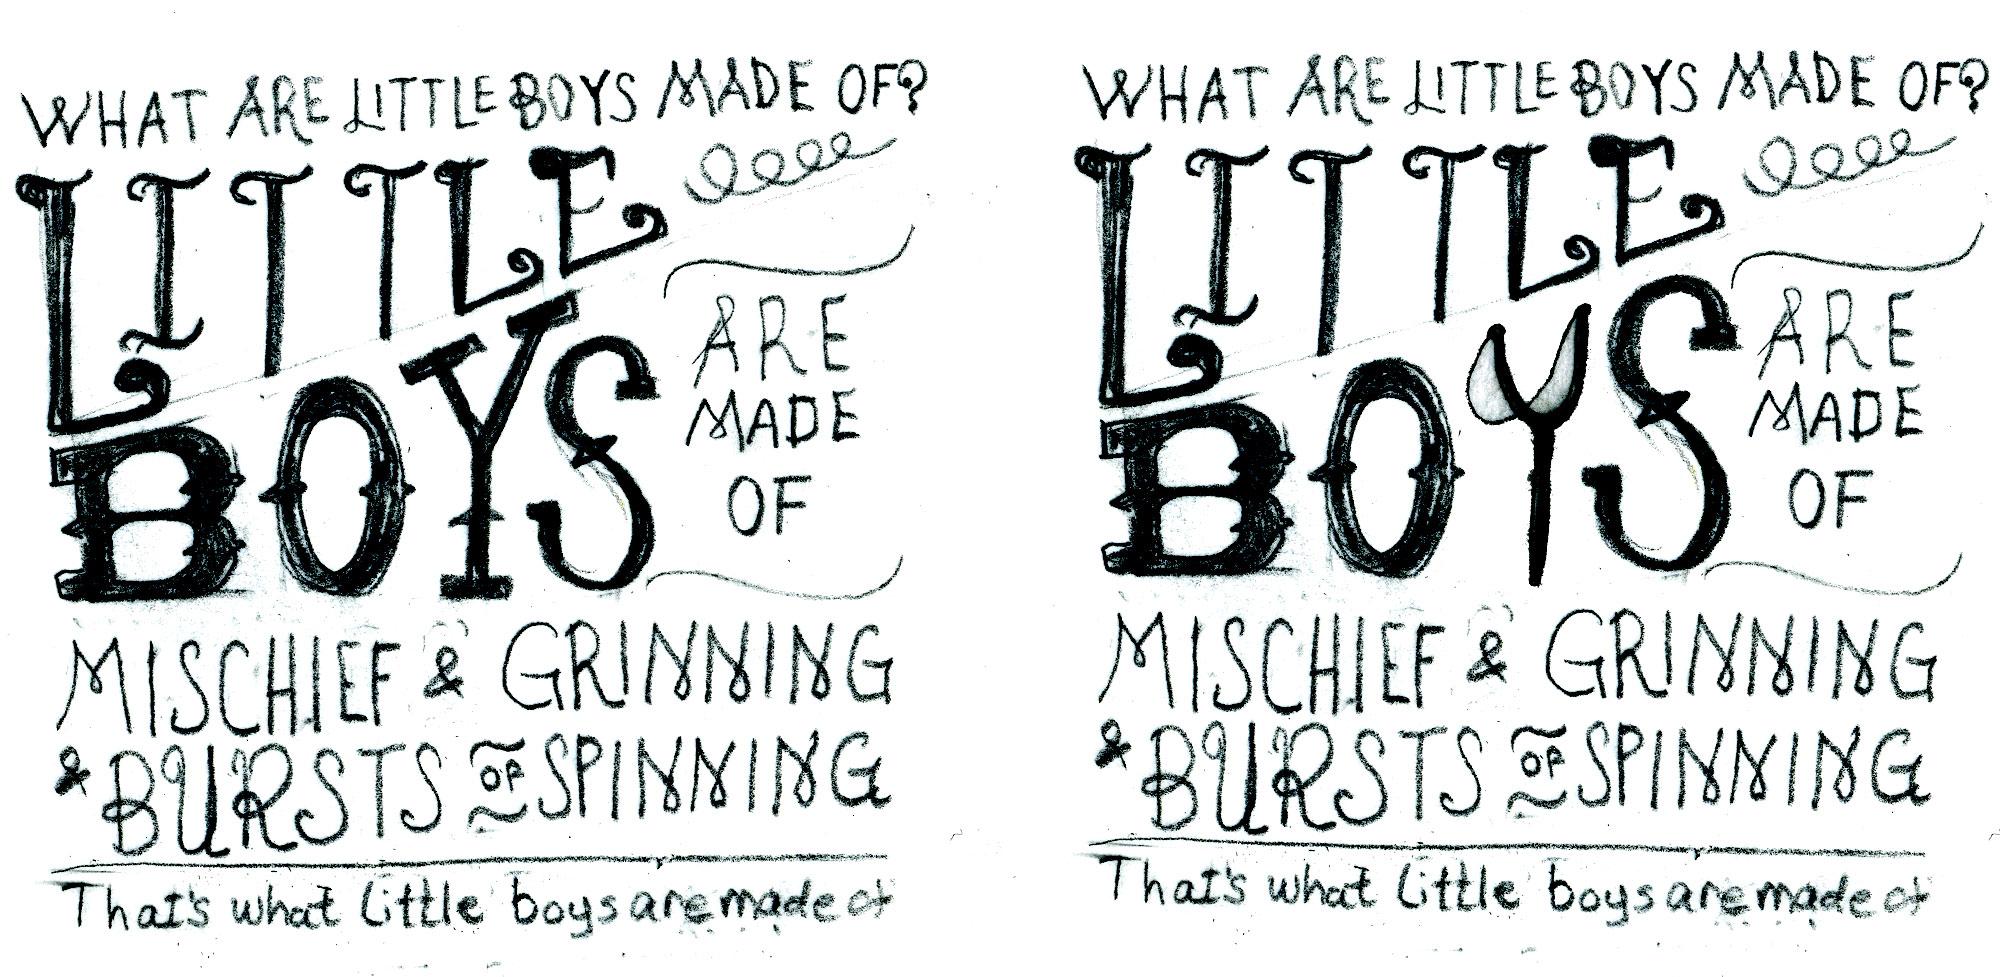 WHAT ARE LITTLE BOYS MADE OF?
LITTLE
BOYS
ARE
MADE
OF
MISCHIEF & GRINNING
& BURSTS OF SPINNING
That's what little boys are made of
WHAT ARE LITTLE BOYS MADE OF?
LITTLE
BOYS
ARE
MADE
OF
MISCHIEF & GRINNING
& BURSTS OF SPINNING
That's what little boys are made of